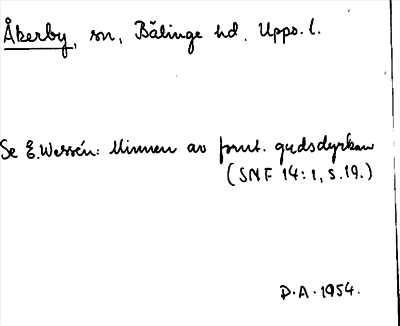 Åkerby, sn, Bälinge hd. Upps. l.
Se E. Wessén: Minnen av fornt. gudsdyrkan
(SNF 14:1, s. 19.)
D.A. 1954.